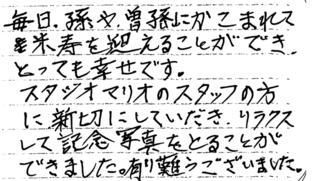 毎日、孫や、曽孫にかこまれて
米寿を迎えることができ、
とっても幸せです。
スタジオマリオのスタッフの方
に新切にしていだき、リラクス
して記念写真をとることが
できました。有り難うございました。